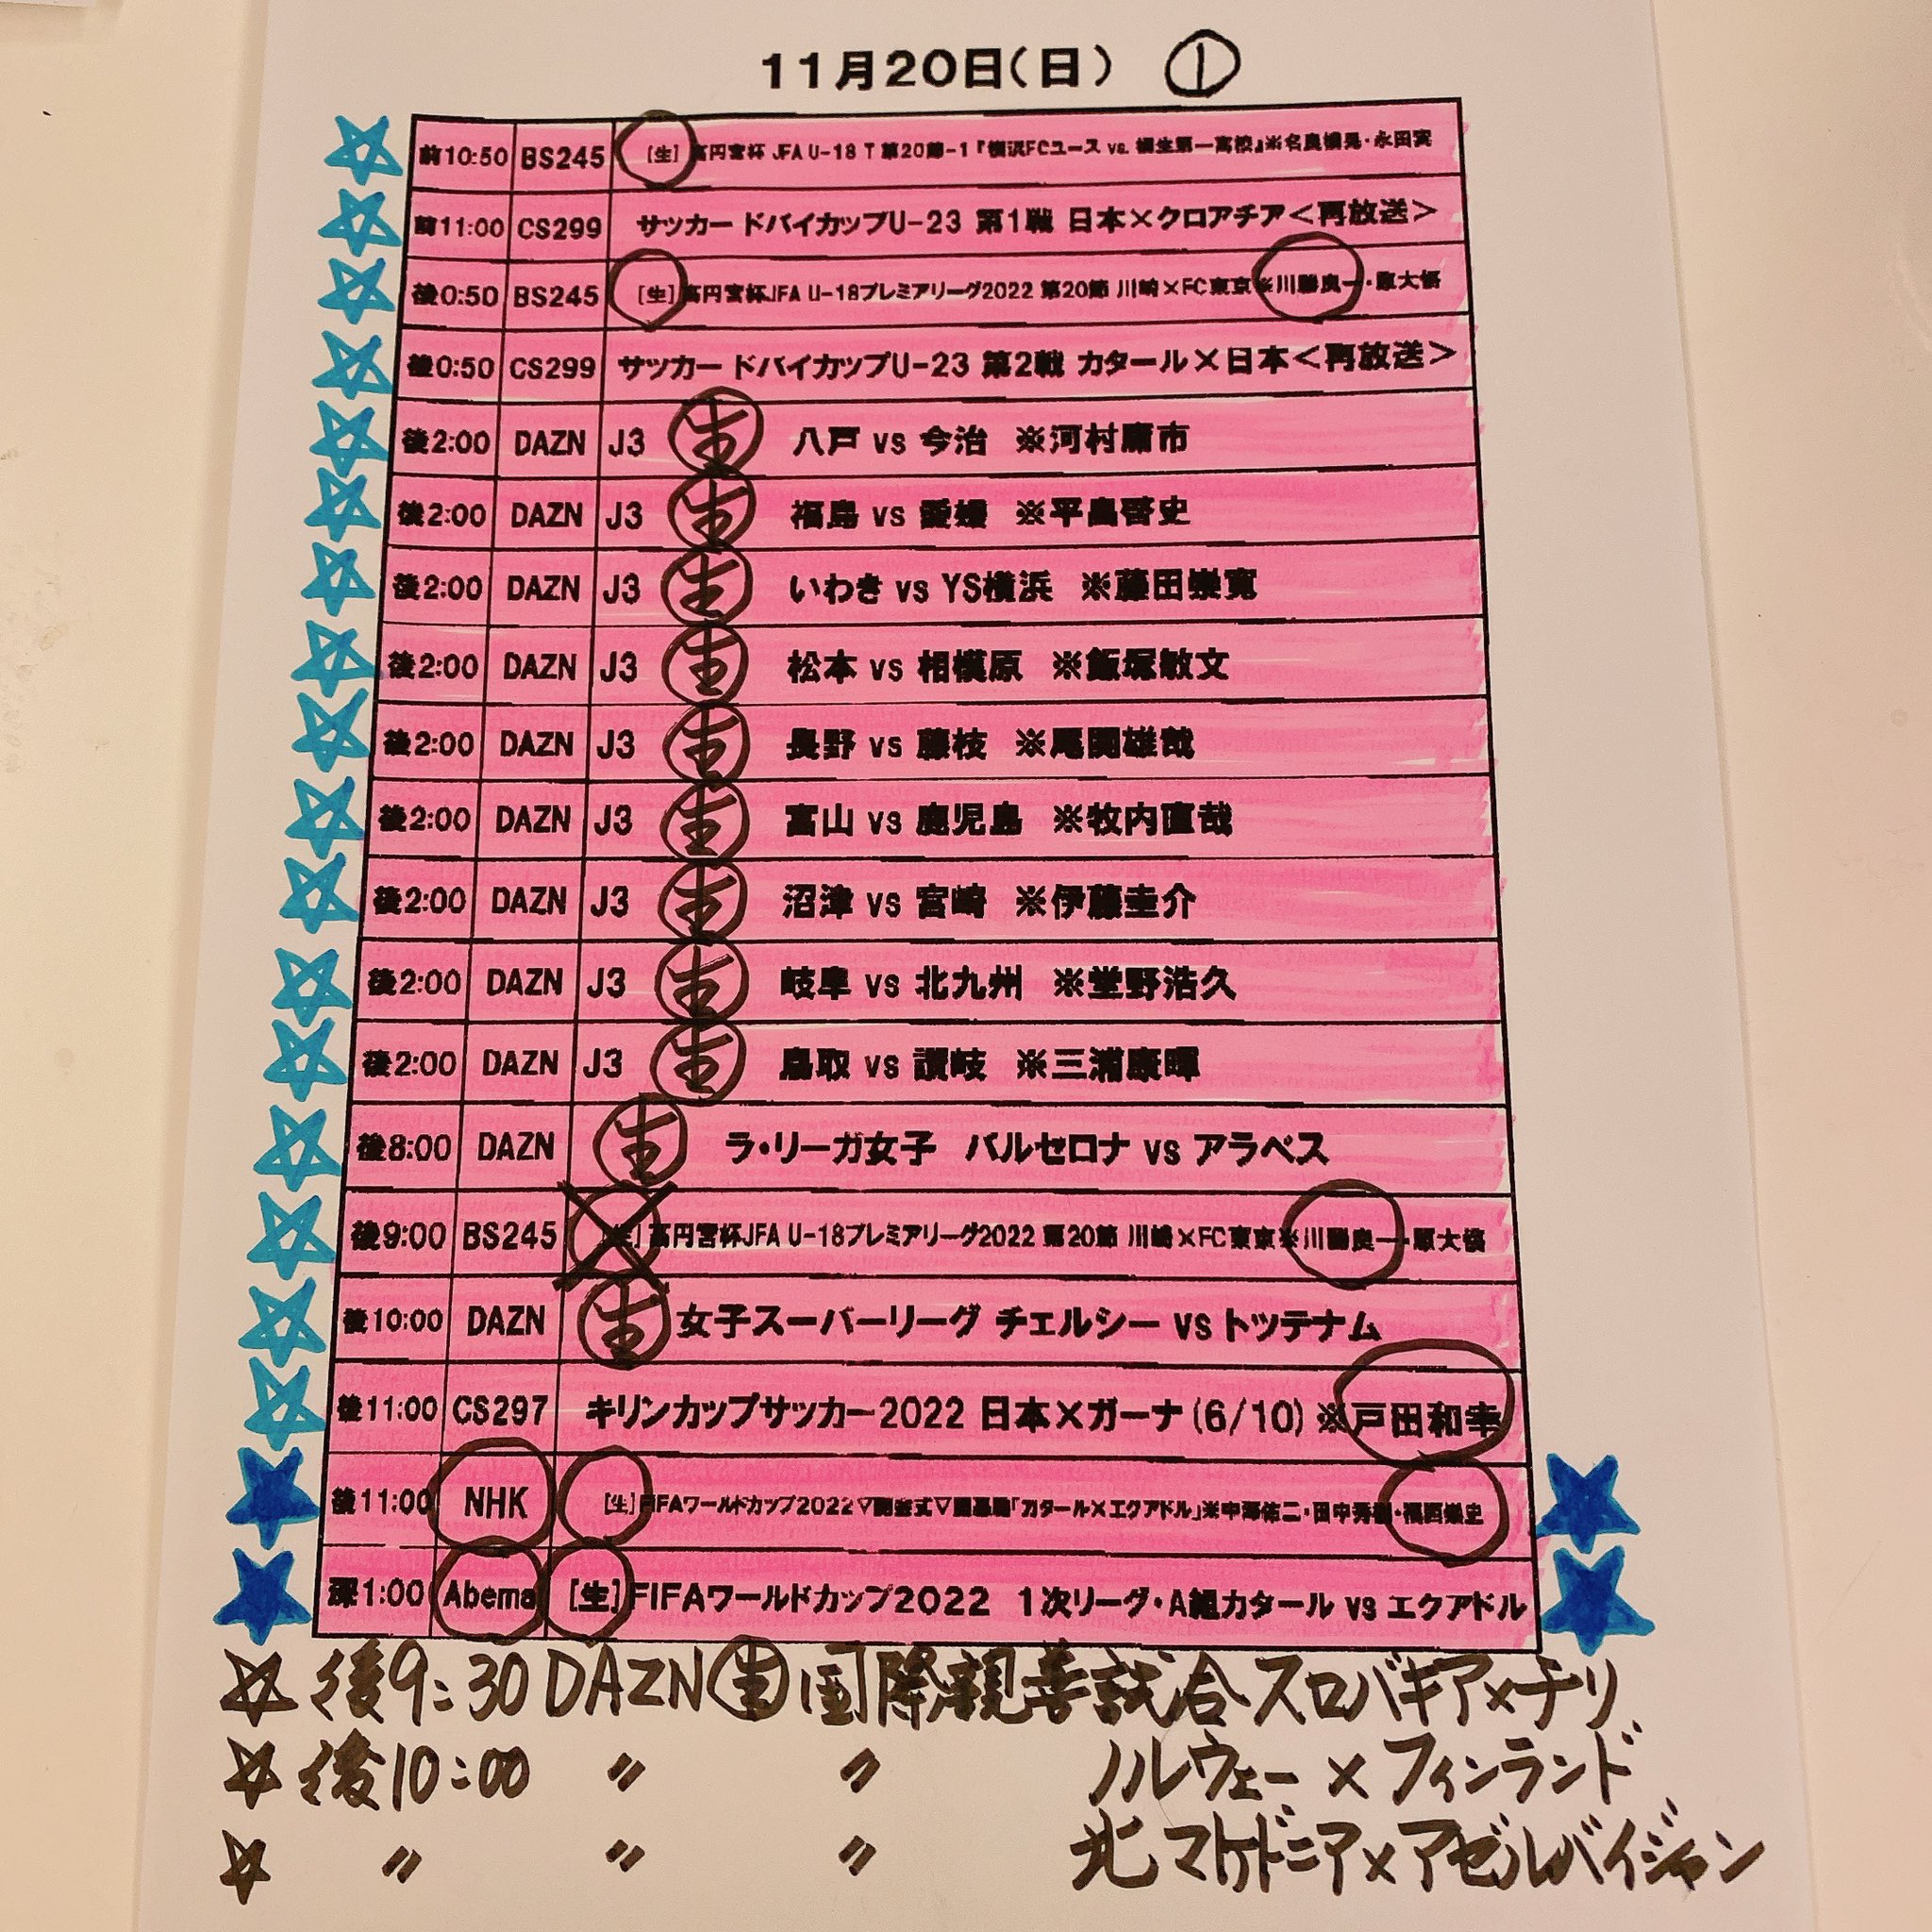 11月20日(日) ①
前10:50 BS245 [生] 高円宮杯 JFA U-18 T 第20節-1『横浜FCユース vs. 桐生第一高校』※名良橋晃・永田実
前11:00 CS299 サッカー ドバイカップU-23 第1戦 日本×クロアチア<再放送>
後0:50 BS245 [生] 高円宮杯JFA U-18プレミアリーグ2022 第20節 川崎×FC東京※川勝良一・原大悟
後0:50 CS299 サッカー ドバイカップU-23 第2戦 カタール×日本<再放送>
後2:00 DAZN J3 生 八戸 vs 今治 ※河村庸市
後2:00 DAZN J3 生 福島 vs 愛媛 ※平畠啓史
後2:00 DAZN J3 生 いわき vs YS横浜 ※藤田崇寛
後2:00 DAZN J3 生 松本 vs 相模原 ※飯塚敏文
後2:00 DAZN J3 生 長野 vs 藤枝 ※尾関雄哉
後2:00 DAZN J3 生 富山 vs 鹿児島 ※牧内直哉
後2:00 DAZN J3 生 沼津 vs 宮崎 ※伊藤圭介
後2:00 DAZN J3 生 岐阜 vs 北九州 ※堂野浩久
後2:00 DAZN J3 生 鳥取 vs 讃岐 ※三浦康暉
後8:00 DAZN 生 ラ・リーガ女子 バルセロナ vs アラベス
後9:00 BS245 [生] 高円宮杯JFA U-18プレミアリーグ2022 第20節 川崎×FC東京※川勝良一・原大悟
後10:00 DAZN 生 女子スーパーリーグ チェルシー vs トッテナム
後11:00 CS297 キリンカップサッカー2022 日本×ガーナ(6/10)※戸田和幸
後11:00 NHK [生]FIFAワールドカップ2022▽開会式▽開幕戦「カタール×エクアドル」※中澤佑二・田中秀樹・福西崇史
深1:00 Abema [生]FIFAワールドカップ2022 1次リーグ・A組カタール vs エクアドル
☆後9:30 DAZN 生 国際親善試合 スロバキア×チリ
☆後10:00 〃 〃 ノルウェー×フィンランド
☆ 〃 〃 〃 北マケドニア×アゼルバイジャン